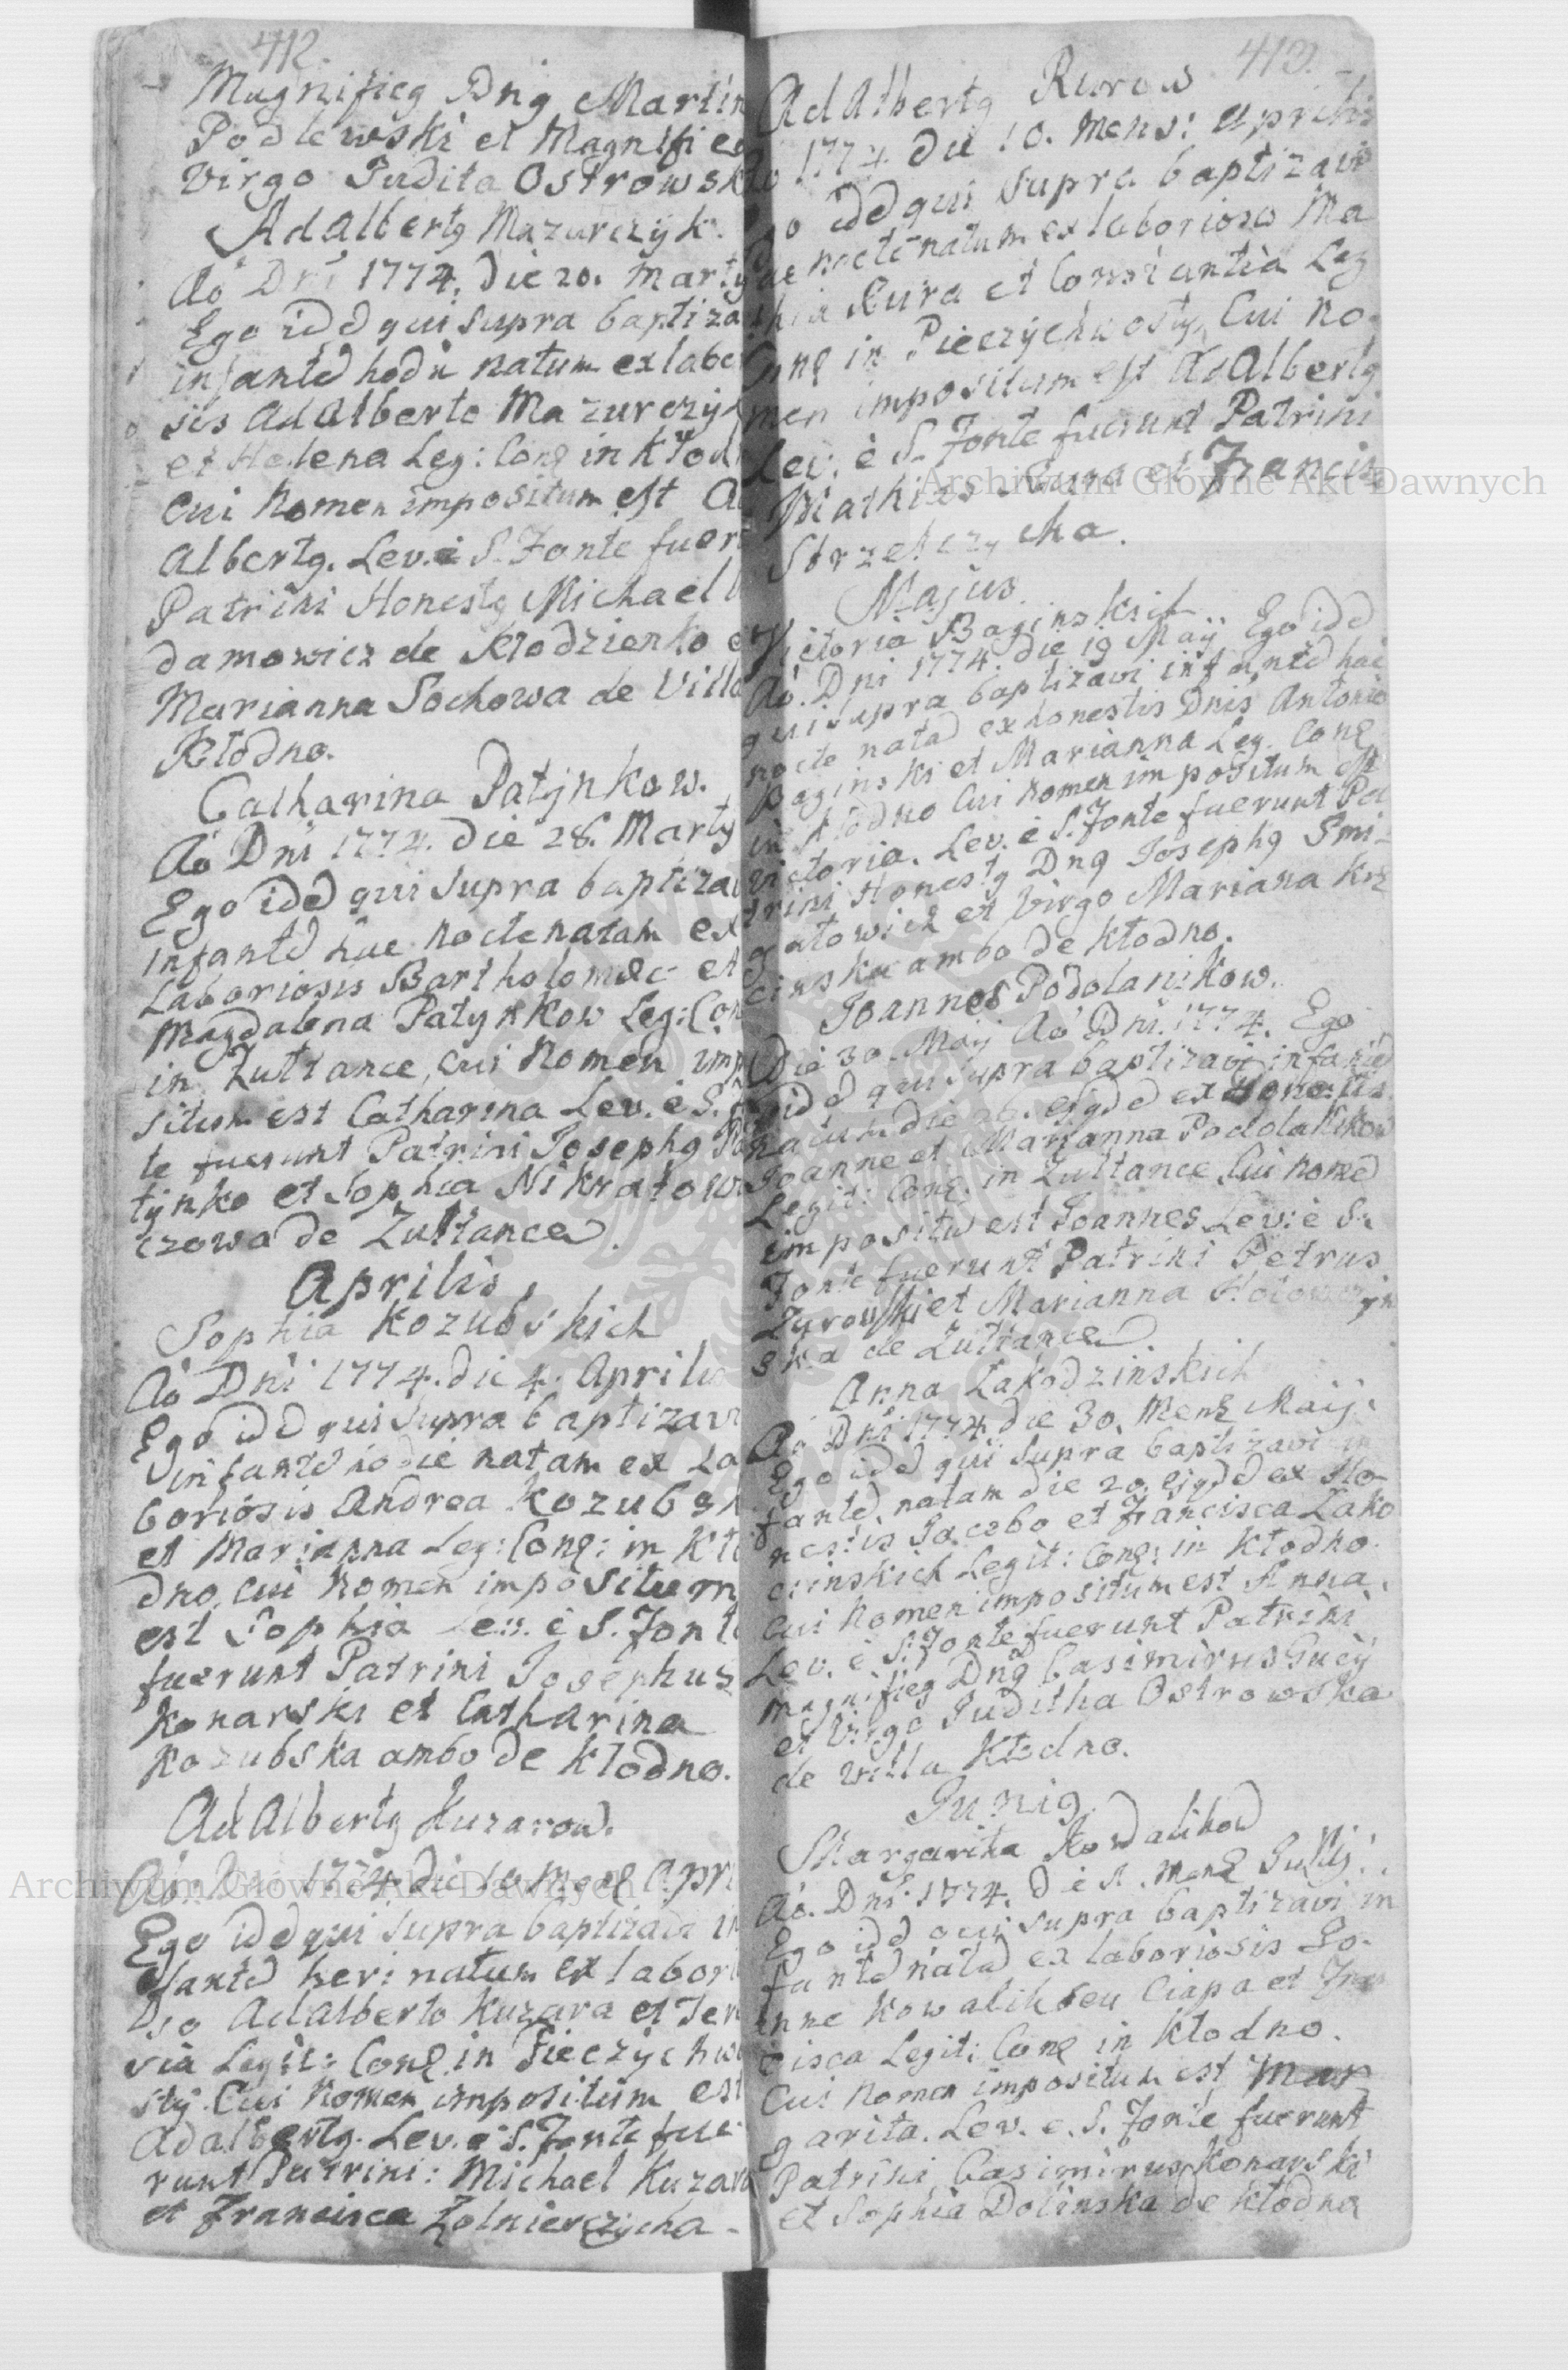 412.
Magnificg Dng Martin
Podlewski et Magnifica
Virgo Judita Ostrowska
AdAlbertg Mazurczyk.
Aō Dni 1774. die 20. Martij
Ego idd qui supra baptiza
infantd hodie natum ex labo
sis AdAlberto Mazurczyk
et Helena Leg: Conq in Kłod
Cui Nomen impositum est A
Albertg. Lev. è S. Fonte fuer
Patrini Honestg Michael
damowicz de Kłodzienko e
Marianna Sochowa de Villa
Kłodno.
Catharina Patynkow.
Aō Dni 1774. die 28. Martij
Ego idd qui supra baptiza
infantd hac nocte natam ex
Laboriosis Bartholomeo et
Magdalena Patynkow Leg: Con
in Zułtance, cui Nomen imp
situm est Catharina Lev. è S. F
te fuerunt Patrini Josephg Pa
tynko et Sophia Nikratow
czowa de Zułtance.
Aprilis,
Sophia Kozubskich
Aō Dni 1774. die 4. Aprilis
Ego idd qui supra baptizavi
infantd hodie natam ex La
boriosis Andrea Kozubsk
et Marianna Leg: Conq: in Kło
dno, cui Nomen impositum
est Sophia Lev. è S. Fonte
fuerunt Patrini Josephus
Konarski et Catharina
Kozubska ambo de Kłodno.
AdAlbertg Kuzarow.
Aō. Dni 1774 die 10 Menq Apri
Ego idd qui supra baptizavi in
fantd heri natum ex labori
so AdAlberto Kuzara et
via Legit: Conq. in Pieczychwo
sty. Cui Nomen impositum est
Adalbertg. Lev. è S. Fonte fue
runt Patrini: Michael Kuzara
et Francisca Zolnierczycha -
413.
AdAlbertg Rurow
1774 die 10. Mens: Aprilis
idd qui supra baptizavi
nocte natum ex laborioso Ma
Rura et Constantia Leg
Conq in Pieczychwosty, Cui No-
men impositum est AdAlbertg
Lev: è S. Fonte fuerunt Patrini
Mathias Rura et Francis
Strzelczycha.
Majus
Victoria Baginskich
Aō. Dni 1774. die 19 Maij Ego idd
qui supra baptizavi infantd hac
nocte natad ex honestis Dnis Antonio
Baginski et Marianna Leg. Conq
in Kłodno Cui Nomen impositum est
Victoria. Lev. è S. Fonte fuerunt Pa
trini Honestg Dng Josephg Smi-
gatowicz et Virgo Mariana Krz
cinska ambo de Kłodno.
Joannes Podolanikow.
Die 30. Maij Aō Dni. 1774. Ego
idd qui supra baptizavi infantd
natum die 26. ejgdd ex Honestis
Joanne et Marianna Podolanikow
Legit: Conq: in Zułtance, Cui nomed
impositu est Joannes Lev: è S.
Fonte fuerunt Patrini Petrus
Zyrowski et Marianna Hołowczyn
ska de Zułtance.
Anna Łakodzinskich
Aō Dni 1774. die 30. Menq Maij.
Ego idd qui supra baptizavi in
fantd, natam die 20. ejgdd ex Ho-
nestis Jacobo et Francisca Łako
cinskich Legit: Conq: in Kłodno.
Cui Nomen impositum est Anna.
Lev. è S. Fonte fuerunt Patrini
Magnificg Dng Casimirus
et Virgo Juditha Ostrowska
de villa Kłodno.
Junig.
Margarita Kowalikow
Aō. Dni 1774. die Menq Julij.
Ego idd qui supra baptizavi in
fantd natad ex laboriosis Jo-
anne Kowalik seu Ciapa et Fran
cisca Legit: Conq in Kłodno.
Cui Nomen impositum est Mar
garita. Lev. e. S. Fonte fuerunt
Patrini Casimirus Konarski
et Sophia Dolinska de Kłodno
Archiwum Główne Akt Dawnych
Archiwum Główne Akt Dawnych